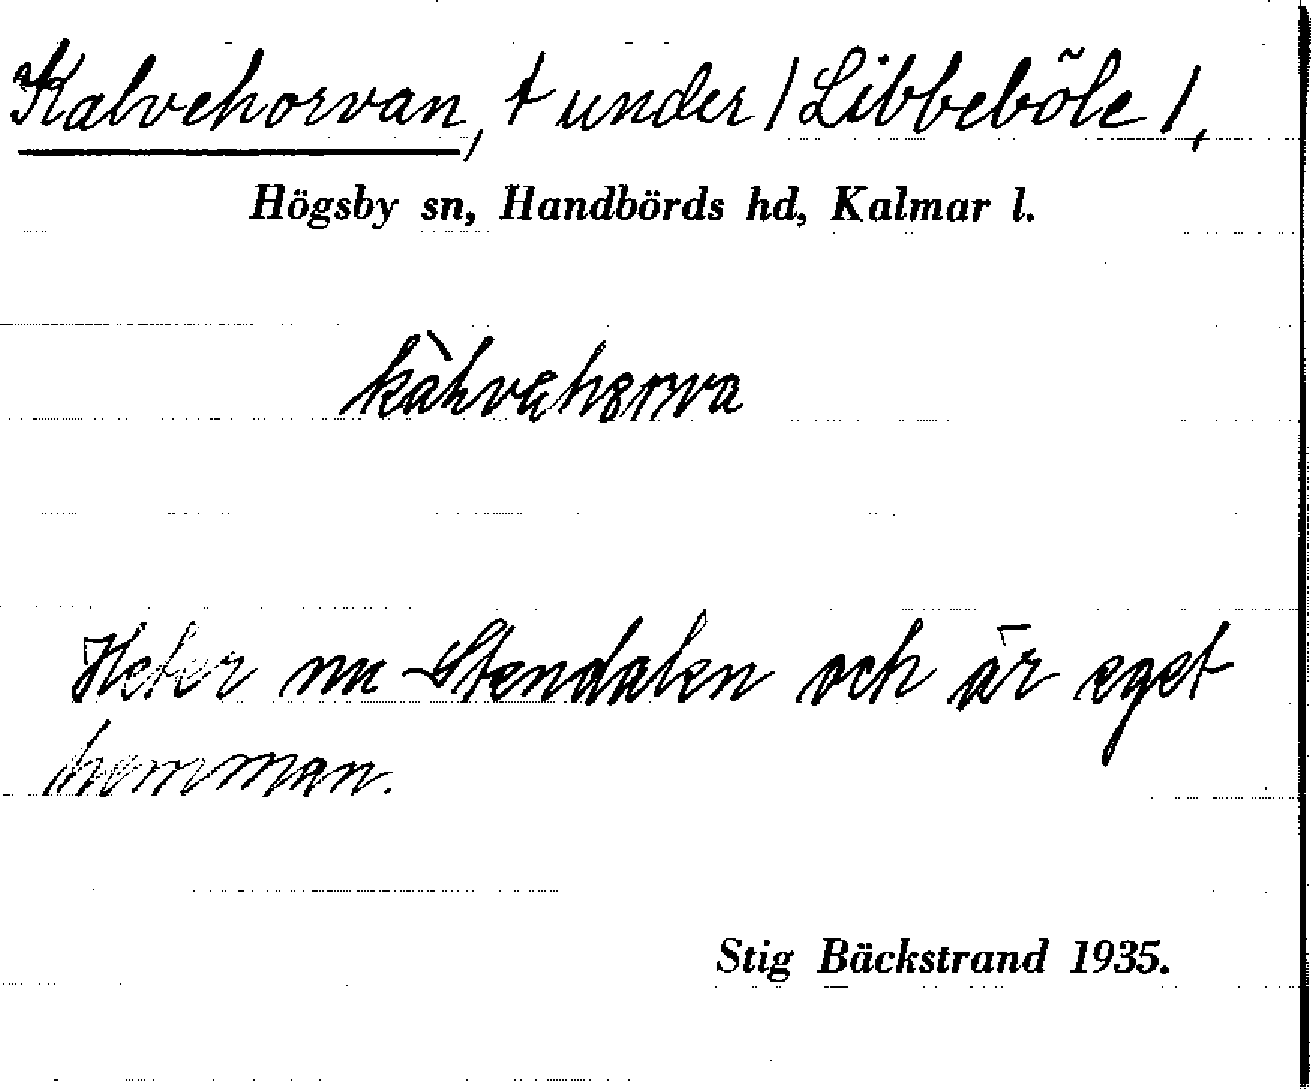 Kalvehorvan, t under / Libbeböle /,
Högsby sn, Handbörds hd, Kalmar l.
Heter nu Stendalen och är eget
hemman.
Stig Bäckstrand 1935.